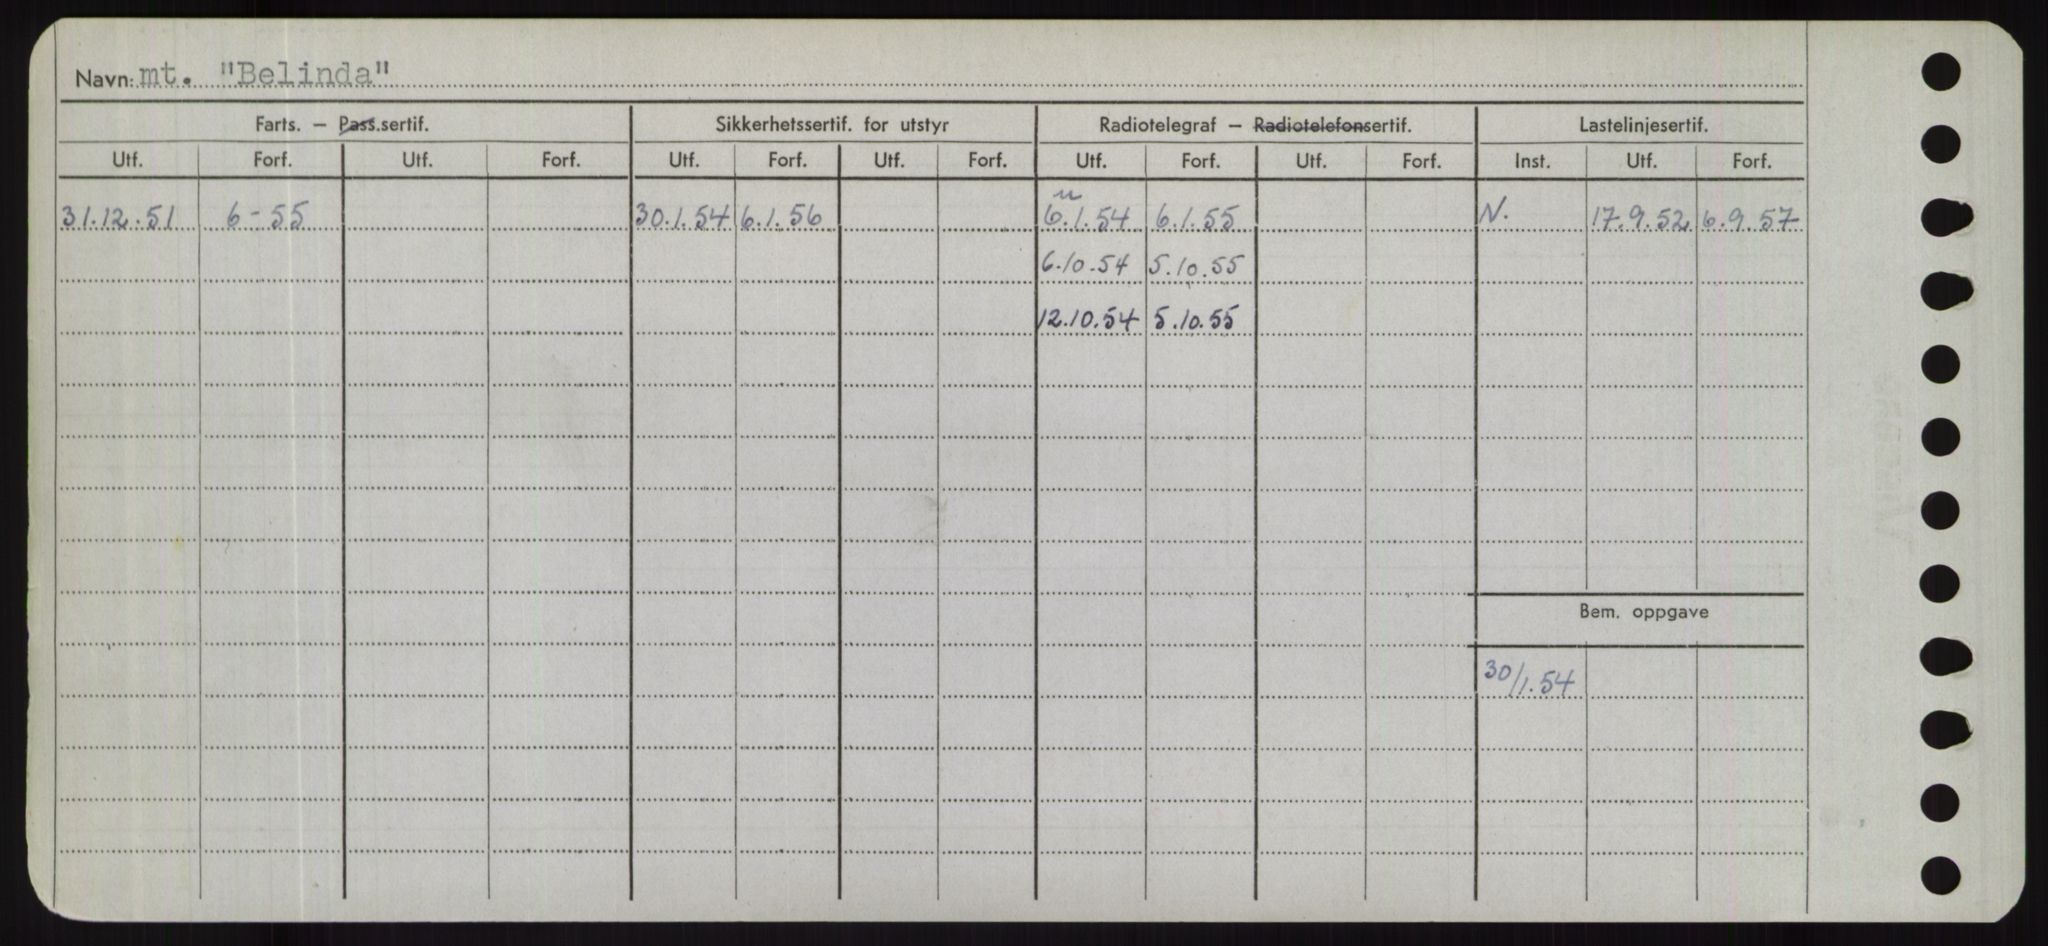 Navn: mt. "Belinda"
Farts. — Pass.sertif. Sikkerhetssertif. for utstyr Radiotelegraf — Radiotelefonsertif. Lastelinjesertif.
Utf. Forf. Utf. Forf. Utf. Forf. Utf. Forf. Utf. Forf. Utf. Forf. Inst. Utf. Forf.
31.12.51 6-55 30.1.54 6.1.56 6.1.54 6.1.55 N. 17.9.52 6.9.57
6.10.54 5.10.55
12.10.54 5.10.55
Bem. oppgave
30/1.54